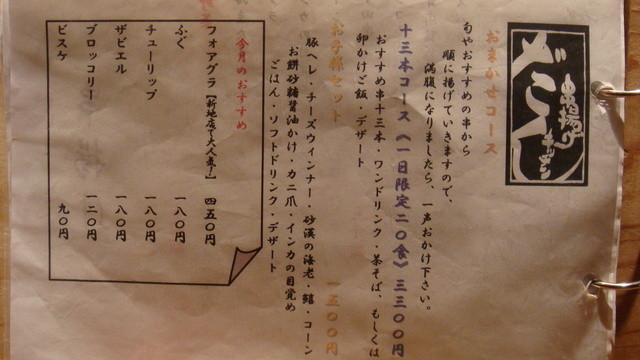 串揚げ
キッチン
おまかせコース
旬やおすすめの串から
順に揚げていきますので、
満腹になりましたら、一声おかけ下さい。
十三本コース（一日限定二〇食）三三〇〇円
おすすめ串十三本・ワンドリンク・茶そば、もしくは
卵かけご飯・デザート
お子様セット 一五〇〇円
豚ヘレ・チーズウィンナー・砂漠の海老・鱚・コーン
お餅砂糖醤油かけ・カニ爪・インカの目覚め
ごはん・ソフトドリンク・デザート
今月のおすすめ
フォアグラ【新地店で大人気！】 四五〇円
ふぐ 一八〇円
チューリップ 一八〇円
ザビエル 一八〇円
ブロッコリー 一二〇円
ビスケ 九〇円